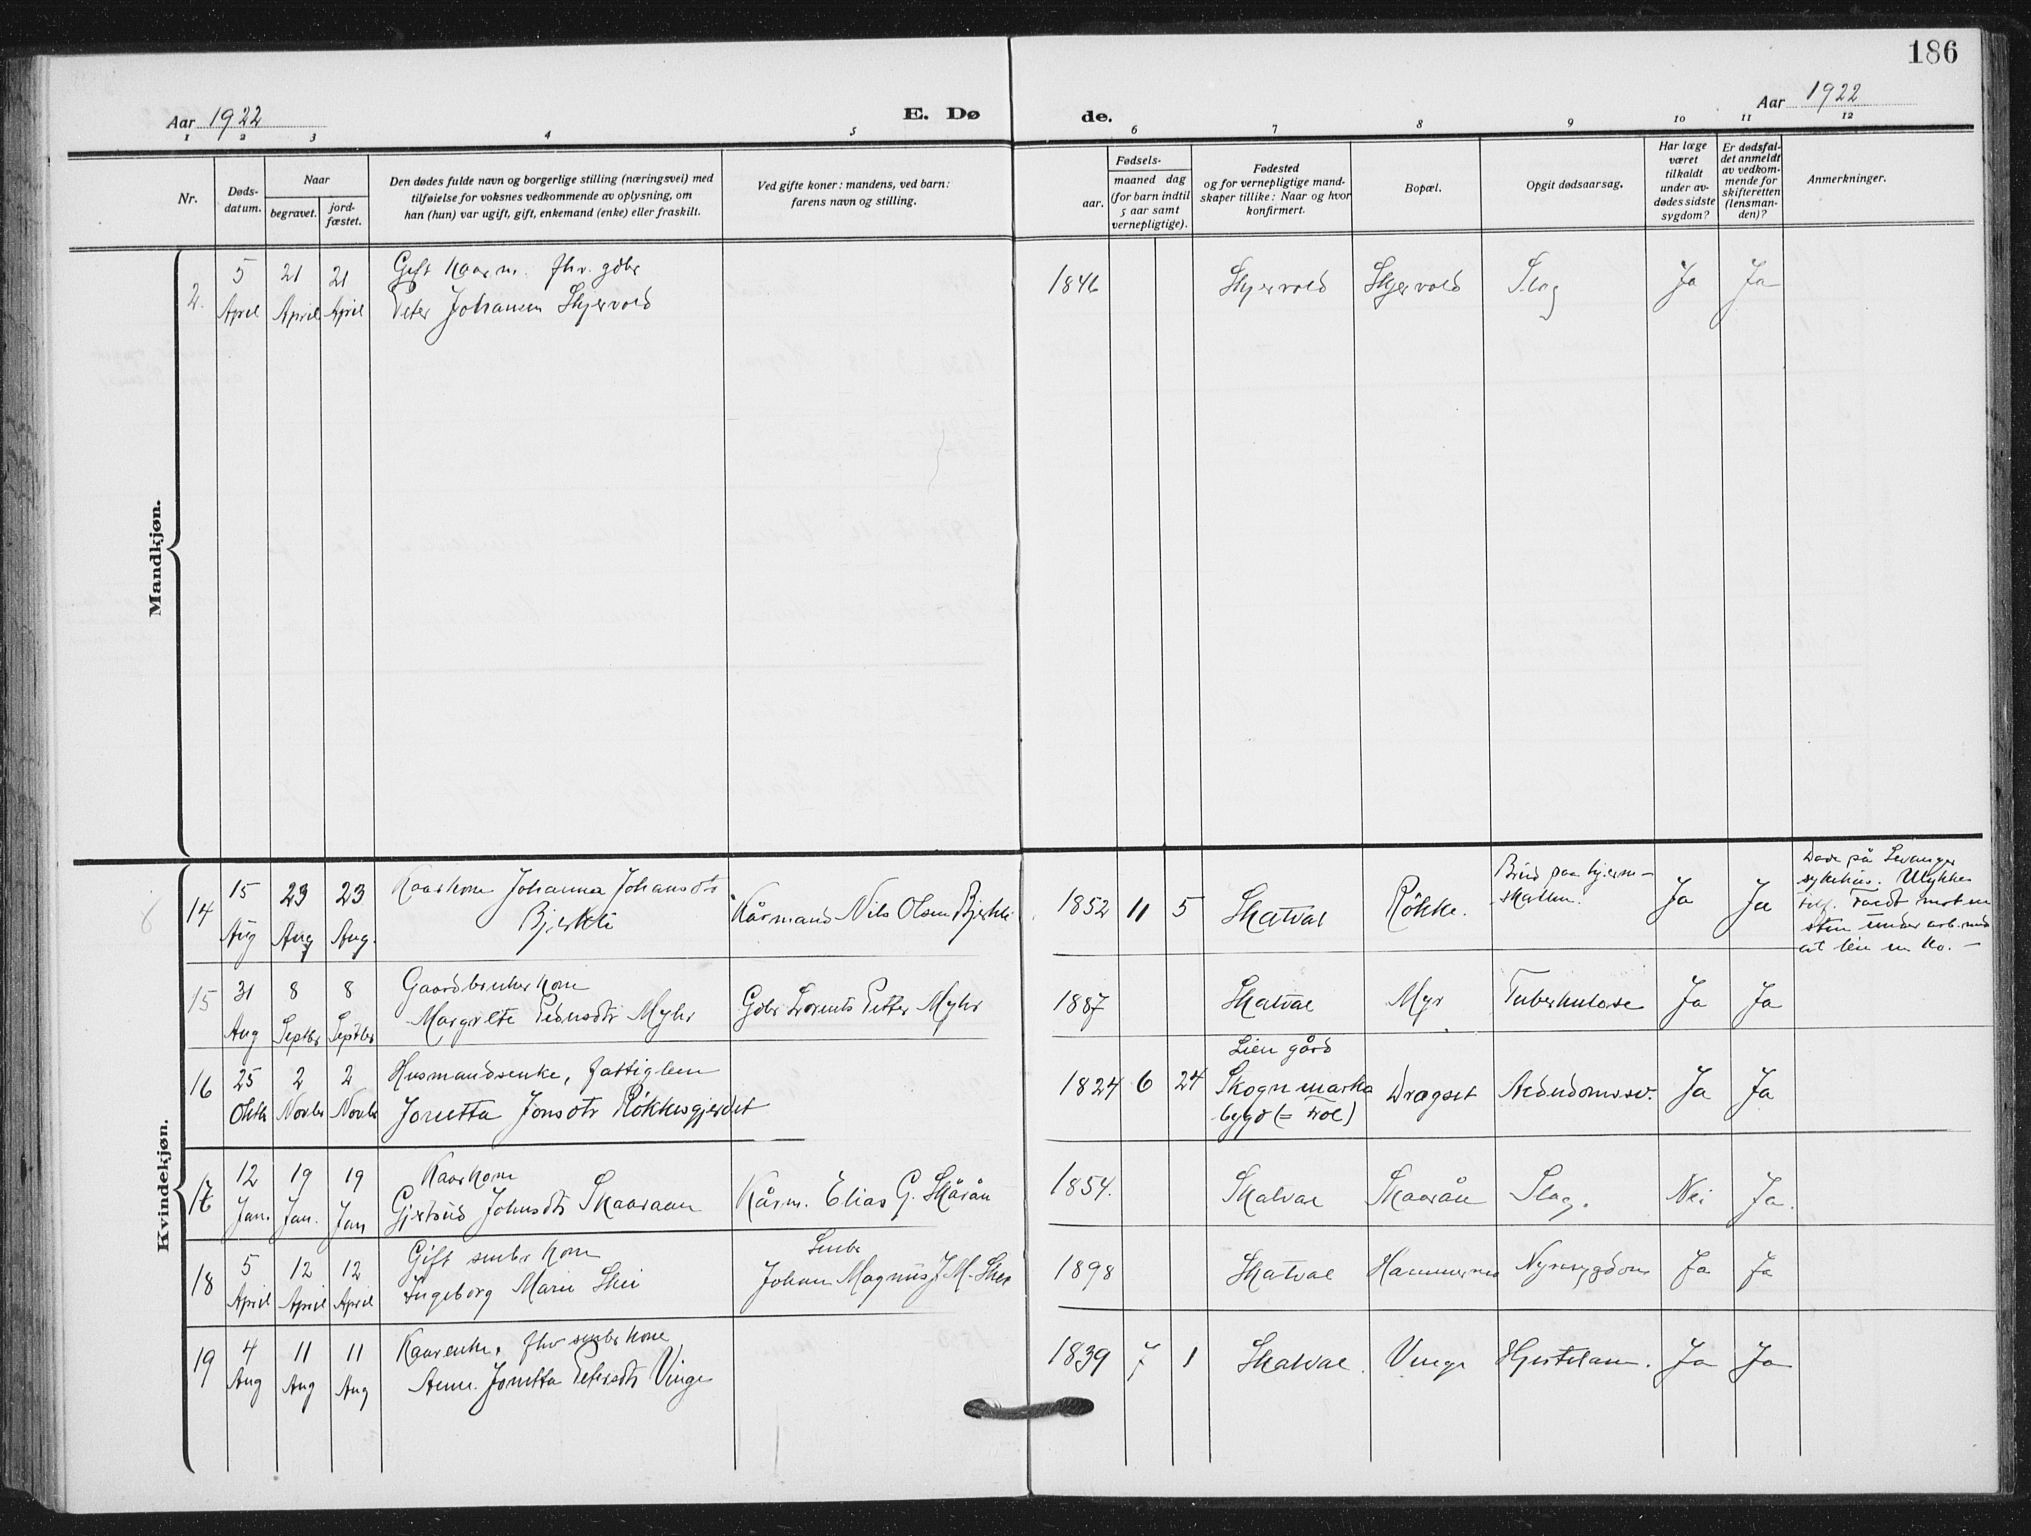 186
Aar 1922
E. Dø
de.
Aar 1922
1 2 3 4 5 6 7 8 9 10 11 12
Nr.
Døds-
datum.
Naar
begravet.
jord-
fæstet.
Den dødes fulde navn og borgerlige stilling (næringsvei) med
tilføielse for voksnes vedkommende av oplysning, om
han (hun) var ugift, gift, enkemand (enke) eller fraskilt.
Ved gifte koner: mandens, ved barn:
farens navn og stilling.
Fødsels-
aar.
maaned dag
(for barn indtil
5 aar samt
vernepligtige).
Fødested
og for vernepligtige mand-
skaper tillike: Naar og hvor
konfirmert.
Bopæl.
Opgit dødsaarsag.
Har læge
været
tilkaldt
under av-
dødes sidste
sygdom?
Er dødsfal-
det anmeldt
av vedkom-
mende for
skifteretten
(lensman-
den)?
Anmerkninger.
Mandkjøn.
2. 5 21 21 Gift Kaarm. fhv. gdbr 1846 Skjervold Skjervold Slag Ja Ja
April April April Peter Johansen Skjervold
Kvindekjøn.
14 15 23 23 Kaarkone Johanna Johansdtr Kårmand Nils Olsen Bjerkli 1852 11 5 Skatval Røkke. Brud paa hjerne- Ja Ja Døde på Levanger
Aug Aug Aug. Bjerkli skallen. sykehus. Ulykkes
tilf. Faldt mot en
sten under arb. med
at leie en ko. -
15 31 8 8 Gaardbrukerkone 1887 Skatval Myr Tuberkulose Ja Ja
Aug Septbr Septbr Margrete Pedersdtr Myhr Gdbr Lorents Petter Myhr
16 25 2 2 Husmandsenke, fattiglem 1824 6 24 Lien gård Dragset Alderdomssv. Ja Ja
Oktbr Novbr Novbr Jonetta Jonsdtr Røkkesgjerdet Skogn marka
bygd
17 12 19 19 Kaarkone Kårm. Elias G. Skårån 1854. Skatval Skaarån Slag. Nei Ja.
Jan. Jan. Jan Gjertrud Johnsdtr Skaaraan
18 5 12 12 Gift smbr kone Smbr 1898 Skatval Hammernes Nyresygdom Ja Ja
April April April Ingeborg Marie Skei Johan Magnus J.M. Skei
19 4 11 11 Kaarenke, fhv smbr kone 1839 7 1 Skatval. Vinge Hjerteslam. Ja Ja
Aug Aug Aug Anne Jonetta Petersdtr Vinge